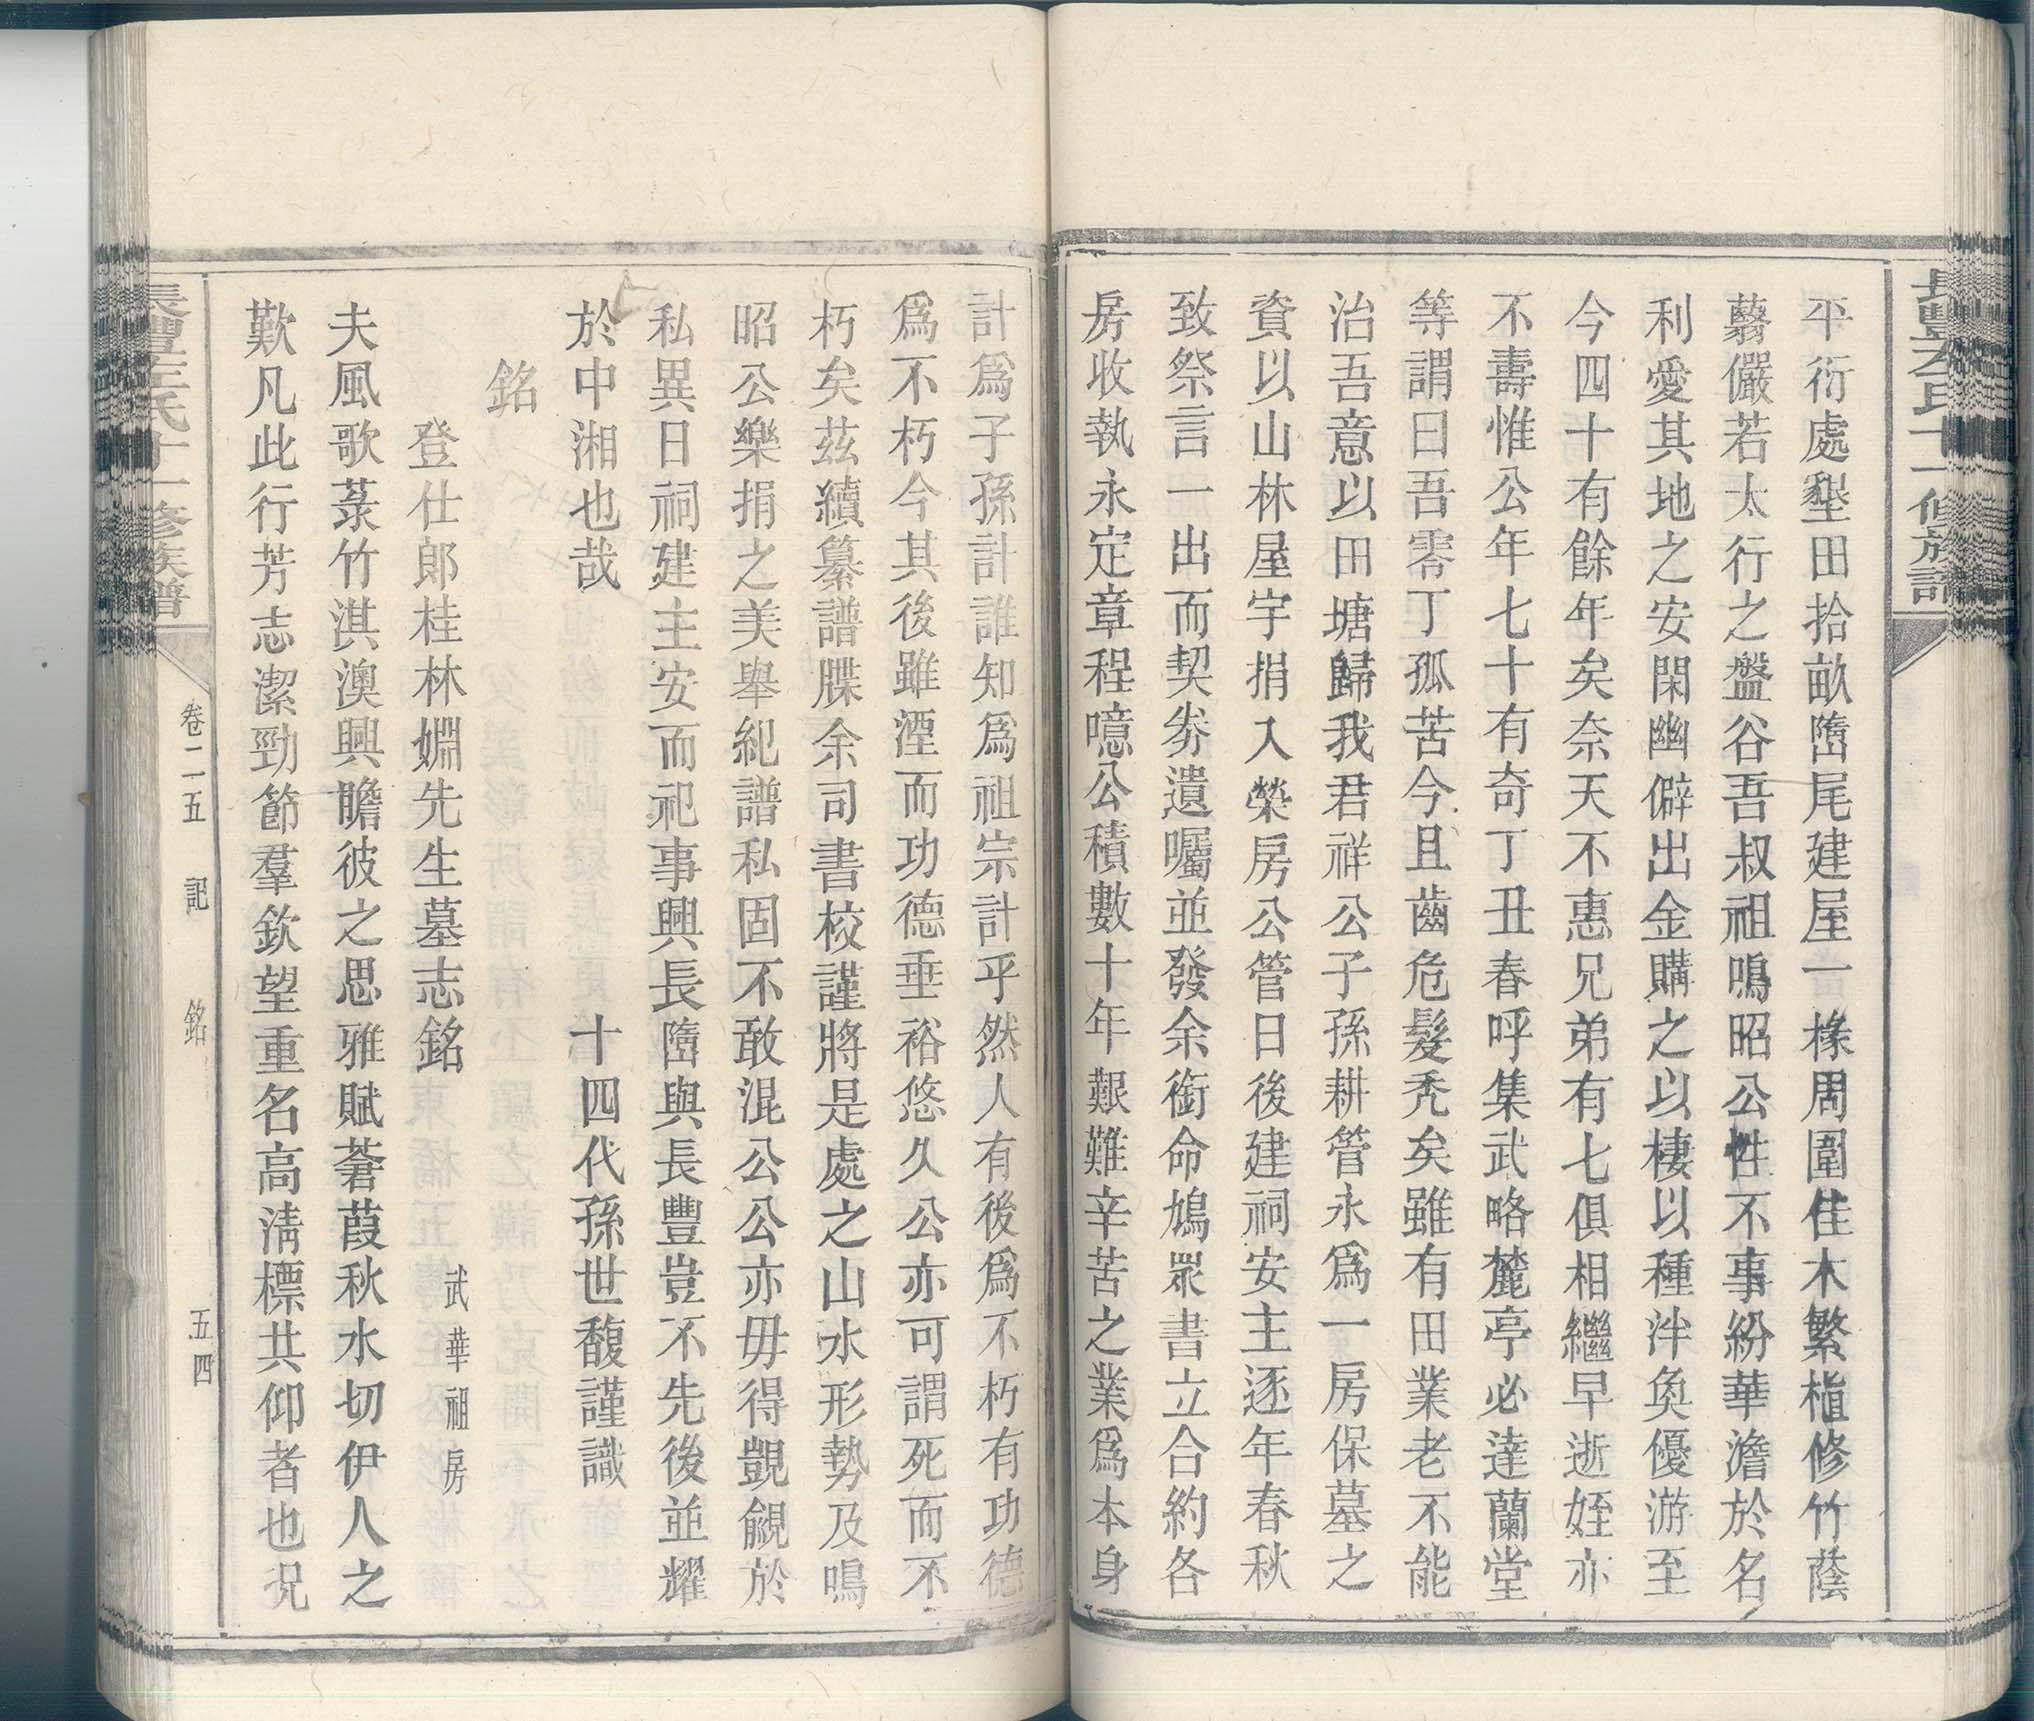 長豐左氏十一修族譜
平衍處墾田拾畝墮尾建屋一椽周圍佳木繁植修竹蔭
蘙儼若太行之盤谷吾叔祖鳴昭公性不事紛華澹於名
利愛其地之安閑幽僻出金購之以棲以種泮奐優游至
今四十有餘年矣奈天不惠兄弟有七俱相繼早逝姪亦
不壽惟公年七十有奇丁丑春呼集武略麓亭必達蘭堂
等謂曰吾零丁孤苦今且齒危髮禿矣雖有田業老不能
治吾意以田塘歸我君祥公子孫耕管永為一房保墓之
資以山林屋宇捐入榮房公管日後建祠安主逐年春秋
致祭言一出而契券遺囑並發余銜命鳩眾書立合約各
房收執永定章程噫公積數十年艱難辛苦之業為本身
計為子孫計誰知為祖宗計乎然人有後為不朽有功德
為不朽今其後雖湮而功德垂裕悠久公亦可謂死而不
朽矣茲續纂譜牒余司書校謹將是處之山水形勢及鳴
昭公樂捐之美舉紀譜私固不敢混公公亦毋得覬覦於
私異日祠建主安而祀事興長墮與長豐豈不先後並耀
於中湘也哉　　　　　　　十四代孫世馥謹識
銘
登仕郎桂林嫺先生墓志銘　　　武華祖房
夫風歌菉竹淇澳興瞻彼之思雅賦蒼葭秋水切伊人之
歎凡此行芳志潔勁節羣欽望重名高淸標共仰者也況
長豐左氏十一修族譜
卷二五　記　銘　五四